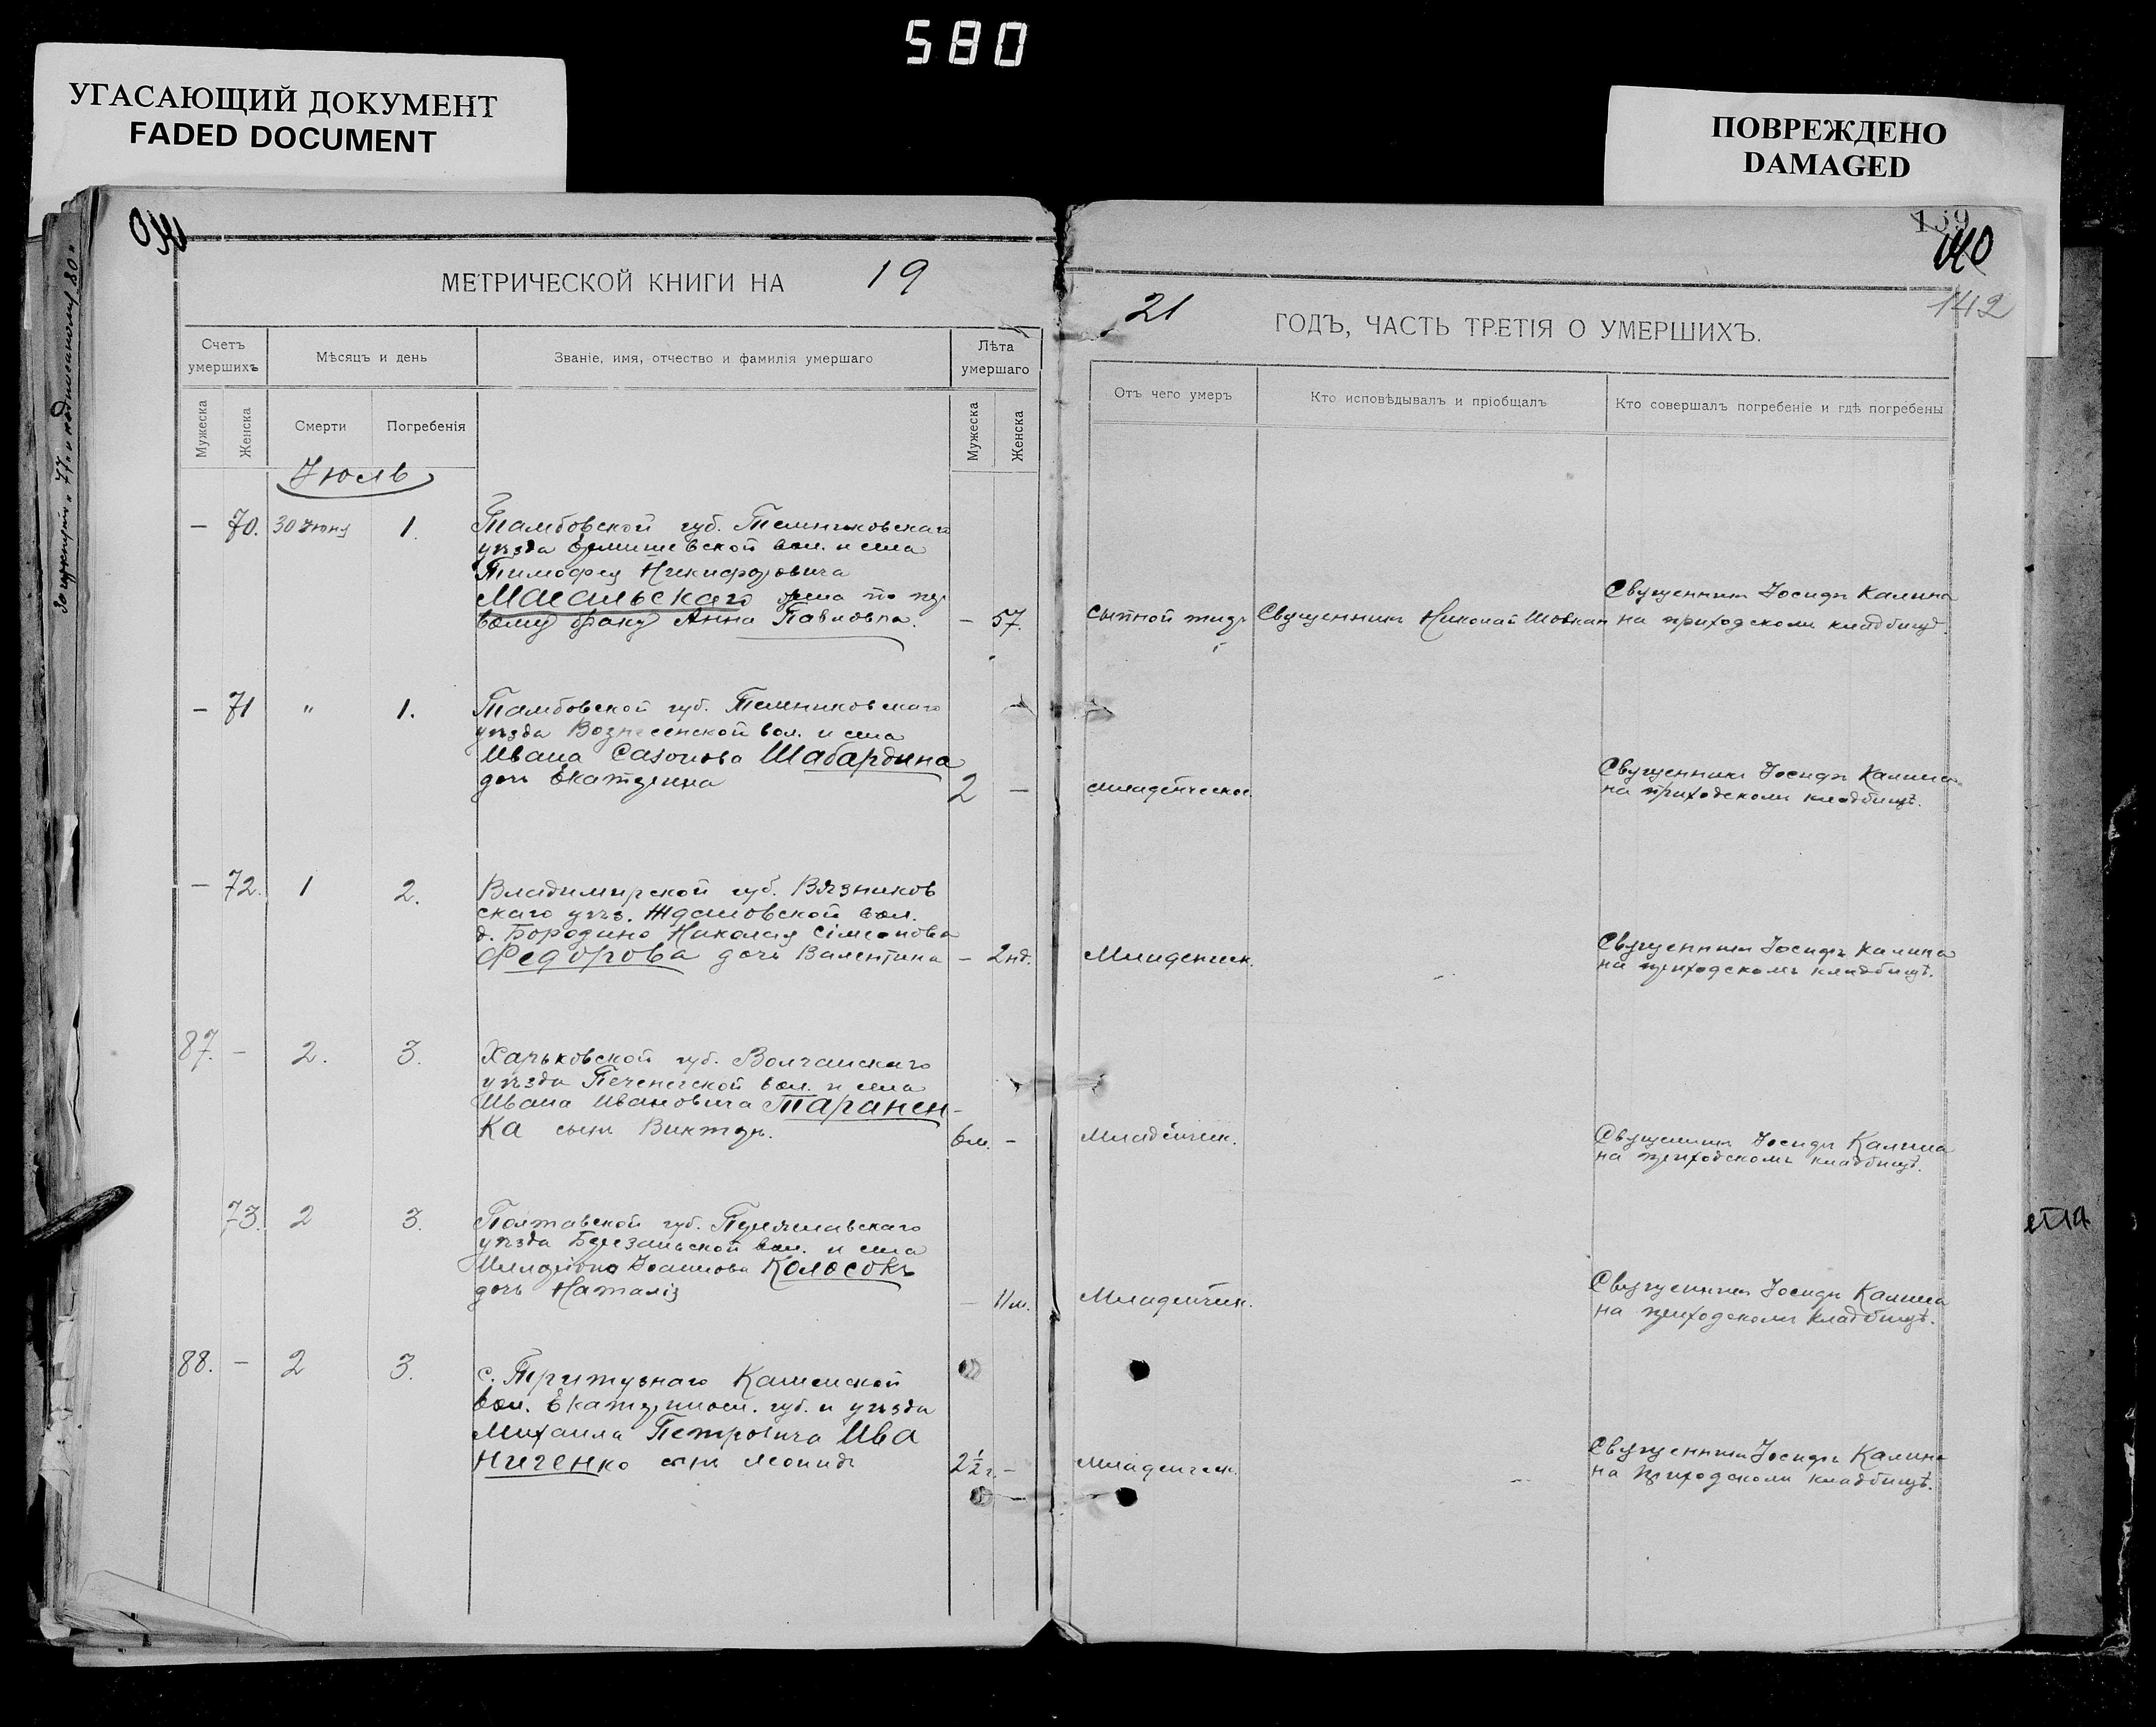 580
УГАСАЮЩИЙ ДОКУМЕНТ
FADED DOCUMENT
ПОВРЕЖДЕНО
DAMAGED
139
140
142
МЕТРИЧЕСКОЙ КНИГИ НА 19
21 ГОДЪ, ЧАСТЬ ТРЕТІЯ О УМЕРШИХЪ.
Счетъ умершихъ
Мѣсяцъ и день
Званіе, имя, отчество и фамилія умершаго
Лѣта умершаго
Отъ чего умеръ
Кто исповѣдывалъ и пріобщалъ
Кто совершалъ погребеніе и гдѣ погребены
Мужеска
Женска
Смерти
Погребенія
Мужеска
Женска
Іюль
— 70. 30 Іюня 1.
Тамбовской губ. Темниковскаго
уѣзда Ермишевской вол. и села
Тимофея Никифоровича
жена по пер
вому браку Анна Павловна. — 57.
Священникъ Николай
Священникъ Іосифъ Калина
на приходскомъ кладбищѣ.
— 71 " 1.
Тамбовской губ. Темниковскаго
уѣзда Вознесенской вол. и села
Ивана Сазонова Шабардина
дочь Екатерина 2 —
младенческ.
Священникъ Іосифъ Калина
на приходскомъ кладбищѣ.
— 72. 1 2.
Владимирской губ. Вязников
скаго уѣз. Ждановской вол.
д. Бородино Николая Сімеонова
Федорова дочь Валентина — 2 нд.
Младенческ.
Священникъ Іосифъ Калина
на приходскомъ кладбищѣ.
87. — 2. 3.
Харьковской губ. Волчанскаго
уѣзда Печенегской вол. и села
Ивана Ивановича Таранен-
ка сынъ Викторъ. 6 м. —
Младенческ.
Священникъ Іосифъ Калина
на приходскомъ кладбищѣ.
73. 2 3.
Полтавской губ. Переяславскаго
уѣзда Березанской вол. и села
Іоаннова Колосокъ
дочь Наталія — 11 м.
Младенческ.
Священникъ Іосифъ Калина
на приходскомъ кладбищѣ.
88. — 2 3.
с. Тритузнаго Каменской
вол. Екатеринос. губ. и уѣзда
Михаила Петровича Ива
ниченко сынъ Леонидъ 2½ г. —
младенческ.
Священникъ Іосифъ Калина
на приходскомъ кладбищѣ.